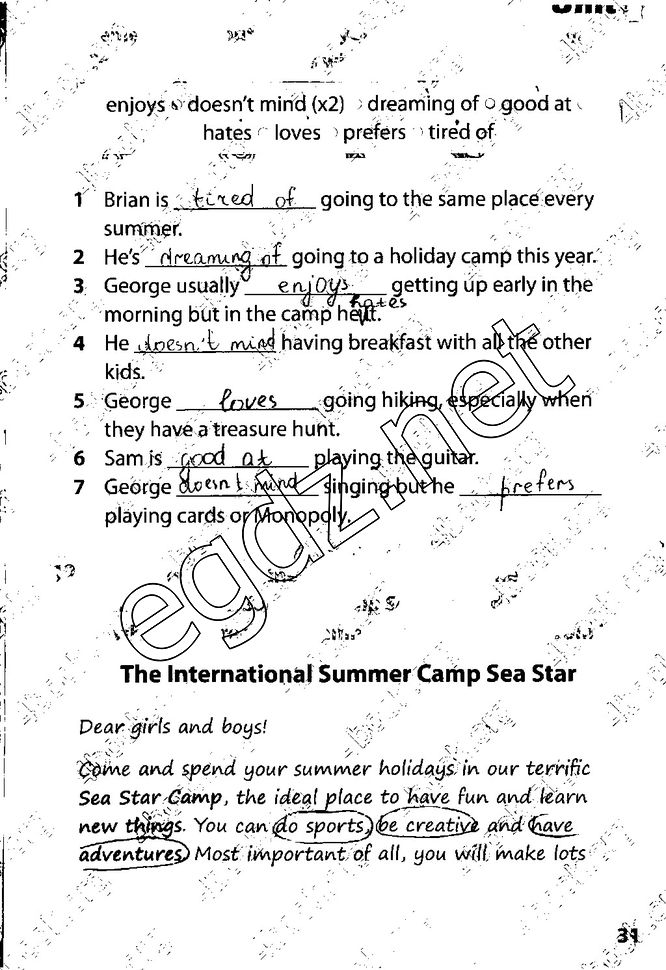 Unit
enjoys doesn't mind (x2) dreaming of good at
hates loves prefers tired of
1 Brian is tired of going to the same place every
summer.
2 He's dreaming of going to a holiday camp this year.
3 George usually enjoys getting up early in the
morning but in the camp he hates it.
4 He doesn't mind having breakfast with all the other
kids.
5 George loves going hiking, especially when
they have a treasure hunt.
6 Sam is good at playing the guitar.
7 George doesn't mind singing but he prefers
playing cards or Monopoly.
egdz.net
The International Summer Camp Sea Star
Dear girls and boys!
Come and spend your summer holidays in our terrific
Sea Star Camp, the ideal place to have fun and learn
new things. You can do sports, be creative and have
adventures. Most important of all, you will make lots
31